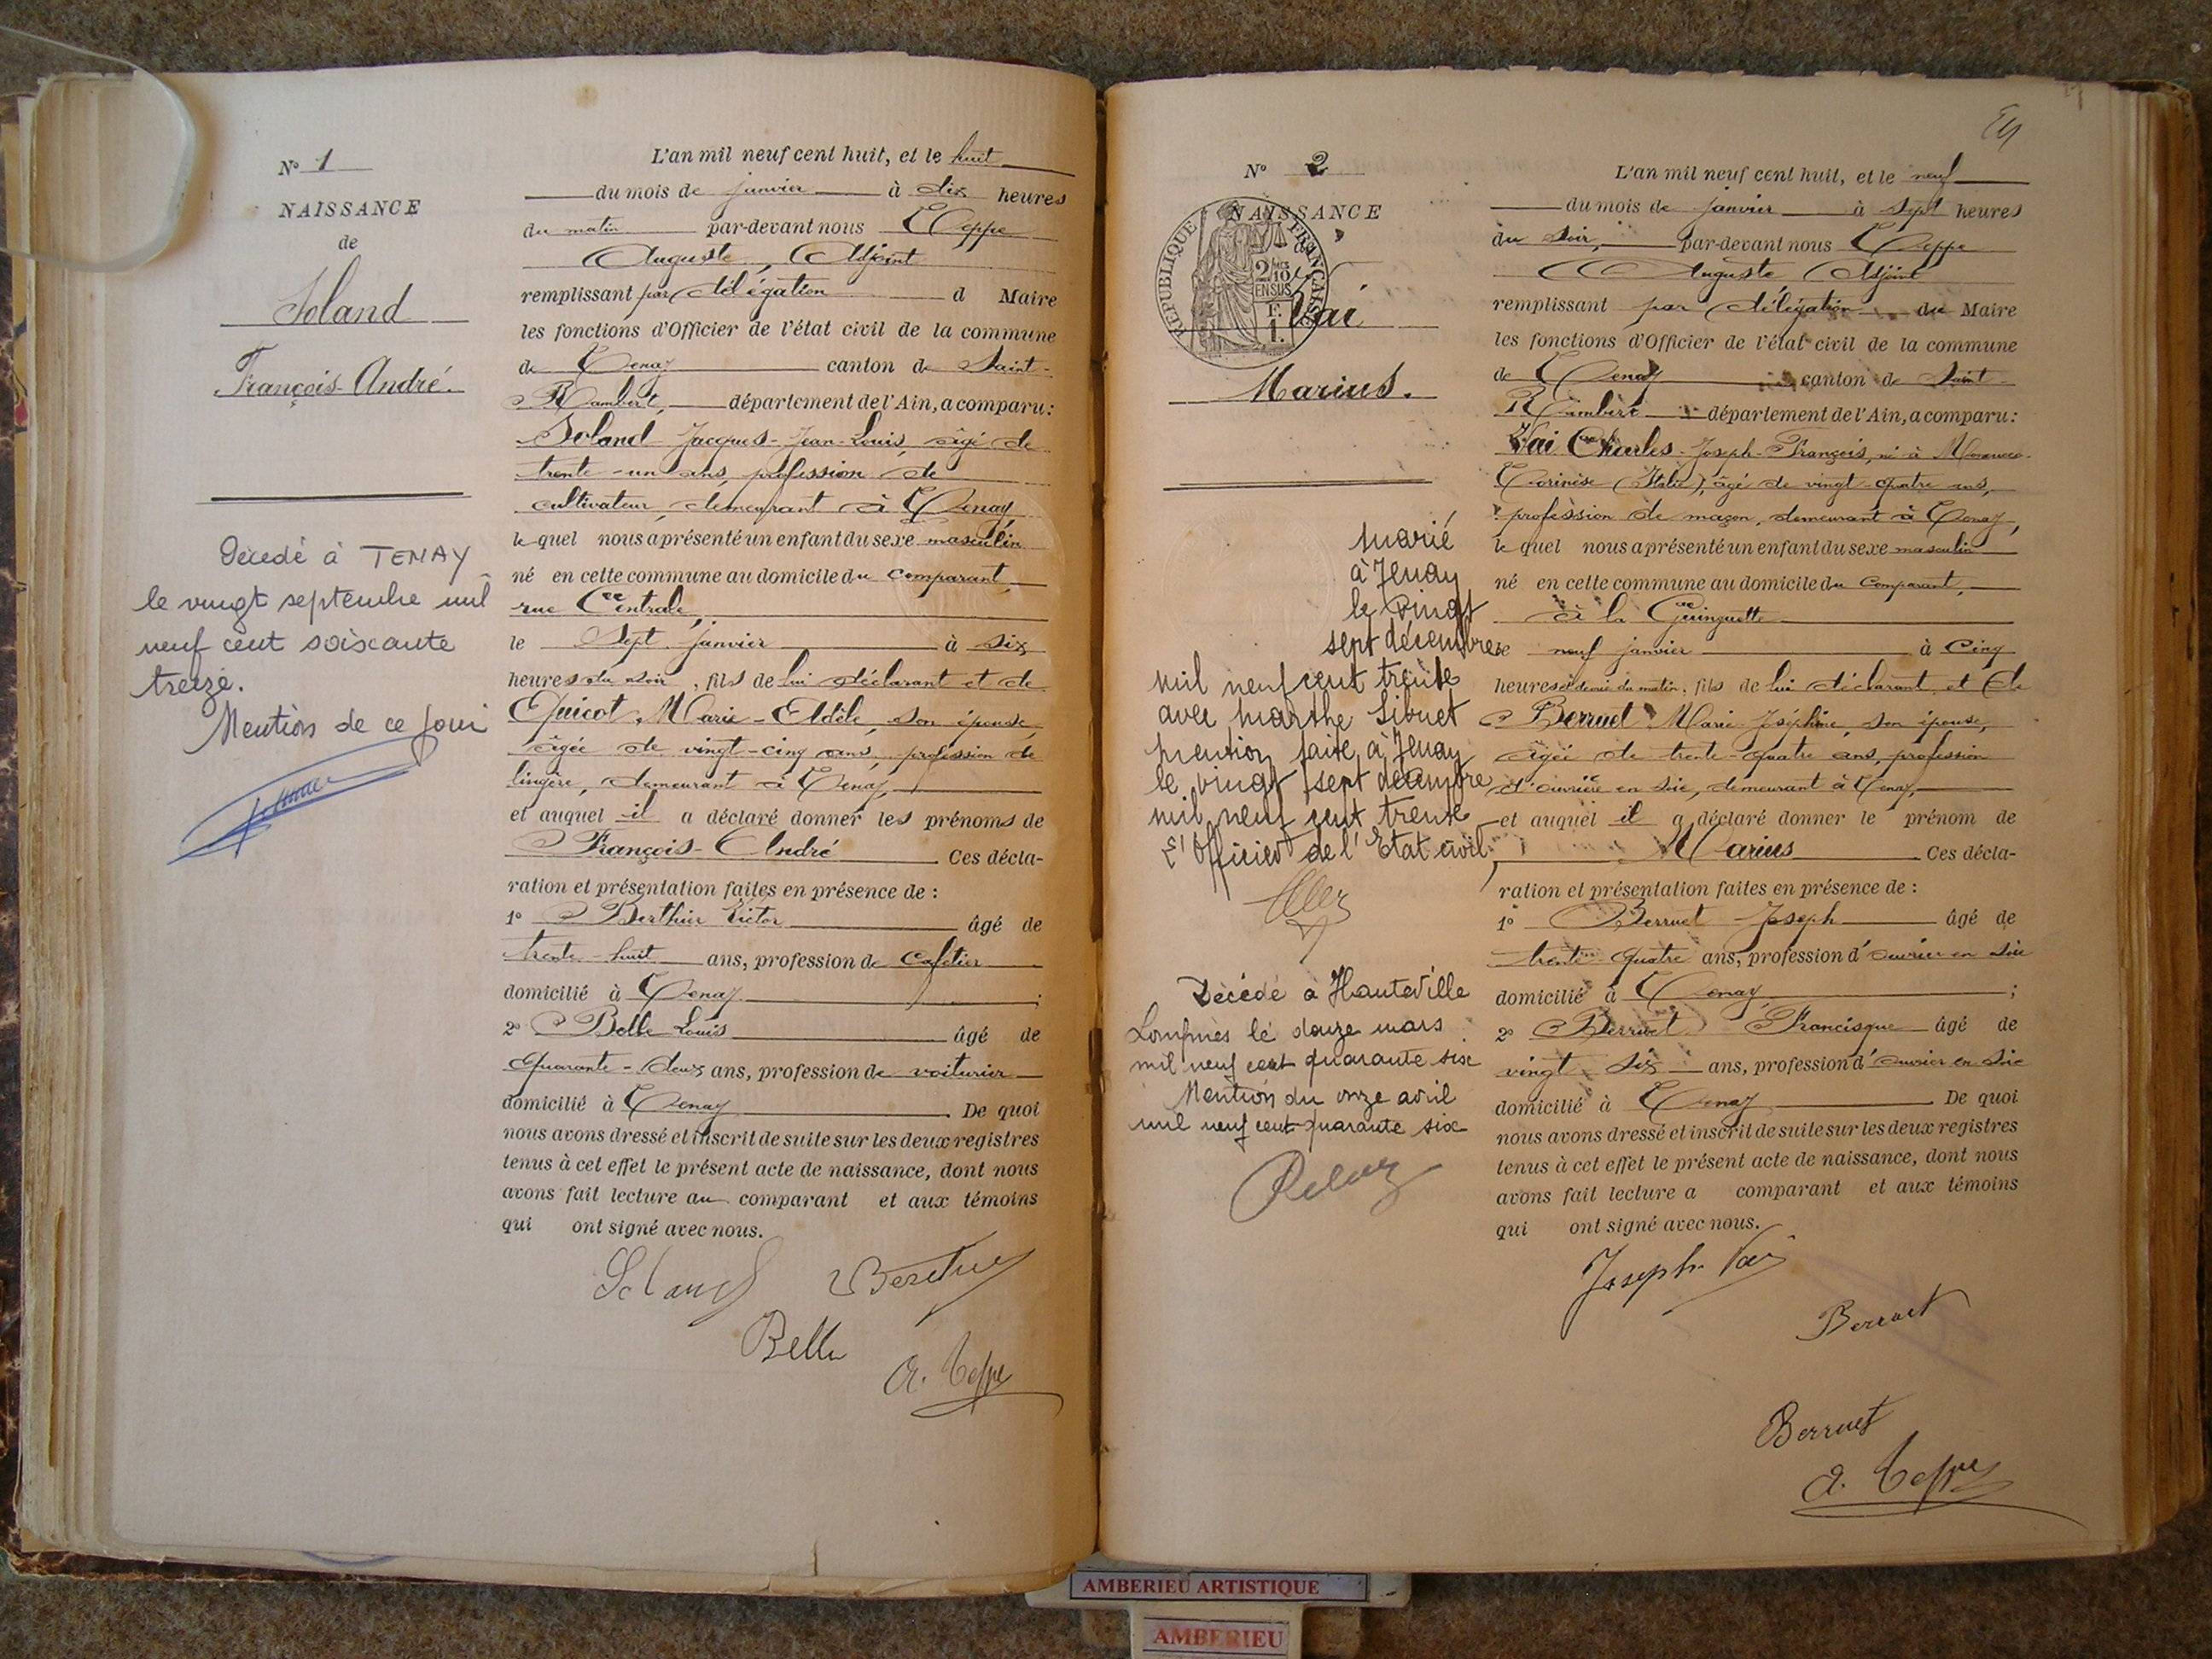 Nº 1
NAISSANCE
de
Soland
François-André.
Décédé à TENAY
le vingt septembre mil
neuf cent soixante
treize.
Mention de ce jour
L'an mil neuf cent huit, et le huit
du mois de janvier à dix heures
du matin par-devant nous Teppe
Auguste, Adjoint
remplissant par délégation d Maire
les fonctions d'Officier de l'état civil de la commune
de Tenay canton de Saint-
Rambert, département de l'Ain, a comparu:
Soland Jacques-Jean-Louis, âgé de
trente-un ans, profession de
cultivateur, demeurant à Tenay
lequel nous a présenté un enfant du sexe masculin
né en cette commune au domicile du comparant,
rue Centrale,
le sept janvier à six
heures du soir, fils de lui déclarant et de
Quicot, Marie-Adèle, son épouse,
âgée de vingt-cinq ans, profession de
lingère, demeurant à Tenay,
et auquel il a déclaré donner les prénoms de
François-André Ces décla-
ration et présentation faites en présence de :
1º Berthier Victor âgé de
trente-huit ans, profession de cafetier
domicilié à Tenay ;
2º Belle Louis âgé de
quarante-deux ans, profession de voiturier
domicilié à Tenay. De quoi
nous avons dressé et inscrit de suite sur les deux registres
tenus à cet effet le présent acte de naissance, dont nous
avons fait lecture au comparant et aux témoins
qui ont signé avec nous.
Soland Berthier
Belle A. Teppe
Nº 2
NAISSANCE
de
RÉPUBLIQUE FRANÇAISE
2/10 EN SUS
F.
1.
Vai
Marius.
marié
à Tenay
le vingt
sept décembre
mil neuf cent trente
avec Marthe Sibuet
mention faite à Tenay
le vingt sept décembre
mil neuf cent trente
L'Officier de l'Etat civil
Décédé à Hauteville
Lompnes le douze mars
mil neuf cent quarante six
Mention du onze avril
mil neuf cent quarante six
L'an mil neuf cent huit, et le neuf
du mois de janvier à sept heures
du soir, par-devant nous Teppe
Auguste Adjoint
remplissant par délégation du Maire
les fonctions d'Officier de l'état civil de la commune
de Tenay canton de Saint-
Rambert département de l'Ain, a comparu:
Vai Charles-Joseph-François, né à
(Italie), âgé de vingt-quatre ans,
profession de maçon, demeurant à Tenay,
lequel nous a présenté un enfant du sexe masculin
né en cette commune au domicile du comparant,
à la Guinguette
le neuf janvier à cinq
heures et demie du matin, fils de lui déclarant et de
Berruet Marie-Joséphine, son épouse,
âgée de trente-quatre ans, profession
d'ouvrière en soie, demeurant à Tenay,
et auquel il a déclaré donner le prénom de
Marius Ces décla-
ration et présentation faites en présence de :
1º Berruet Joseph âgé de
trente-quatre ans, profession d'ouvrier en soie
domicilié à Tenay ;
2º Berruet Francisque âgé de
vingt-six ans, profession d'ouvrier en soie
domicilié à Tenay De quoi
nous avons dressé et inscrit de suite sur les deux registres
tenus à cet effet le présent acte de naissance, dont nous
avons fait lecture a comparant et aux témoins
qui ont signé avec nous.
Joseph Vai
Berruet
Berruet
A. Teppe
AMBERIEU ARTISTIQUE
AMBERIEU